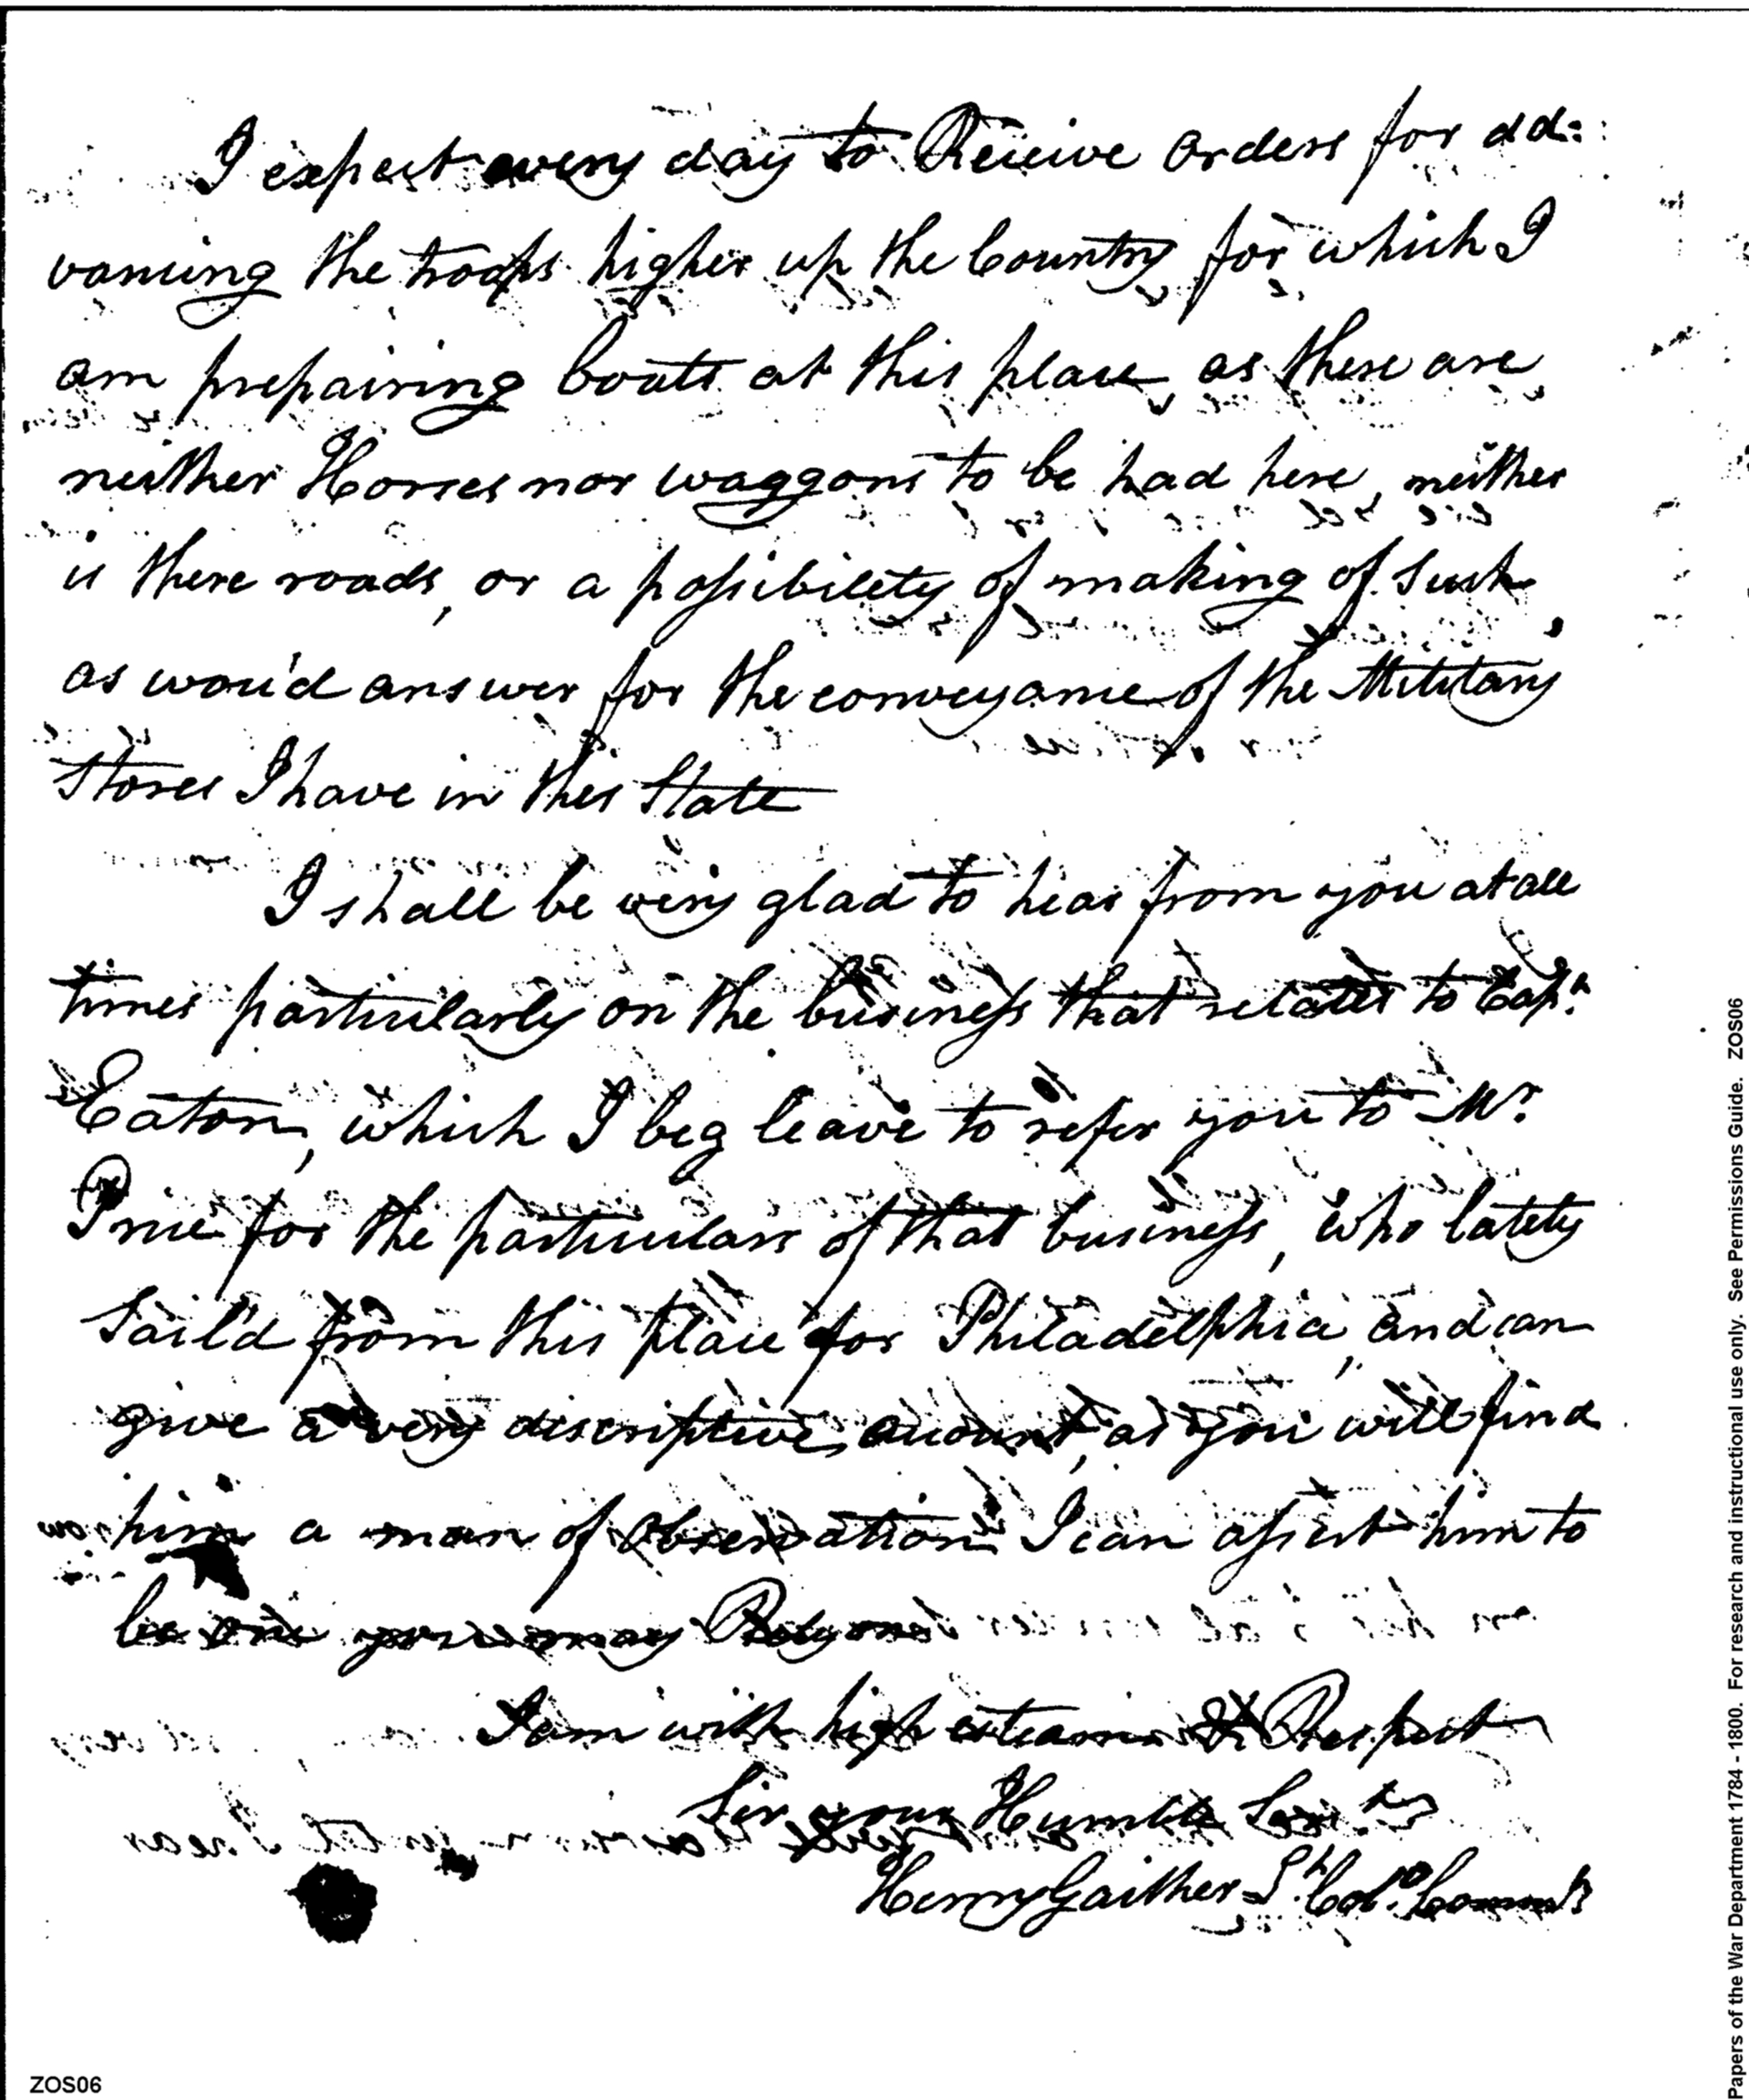 I expect every day to Receive orders for ad:
vancing the troops higher up the Country for which I
am prepairing boats at this place, as there are
neither Horses nor waggons to be had here, neither
is there roads, or a possibility of making of Such
as wou'd answer for the conveyance of the Military
Stores I have in this State
I shall be very glad to hear from you at all
times particularly on the business that relates to Capn.
Eaton, which I beg leave to refer you to Mr.
Price for the particulars of that business, who lately
Sail'd from this place for Philadelphia, and can
give a very discriptive account, as you will find
him a man of Observation I can assert him to
be one you may Rely on
I am with high esteem & Respect
Sir your Humble Servt
Henry Gaither Lt. Colo. Commt
ZOS06
Papers of the War Department 1784 - 1800. For research and instructional use only. See Permissions Guide. ZOS06